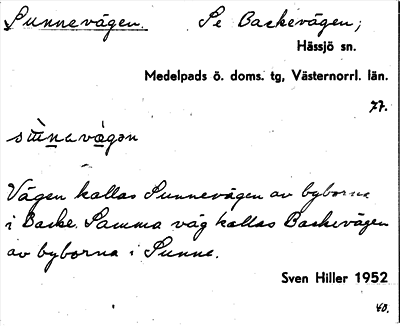 Sunnevägen. Se Backevägen;
Hässjö sn.
Medelpads ö. doms. tg, Västernorrl. län.
77.
Vägen kallas Sunnevägen av byborna
i Backe. Samma väg kallas Backevägen
av byborna i Sunne.
Sven Hiller 1952
40.